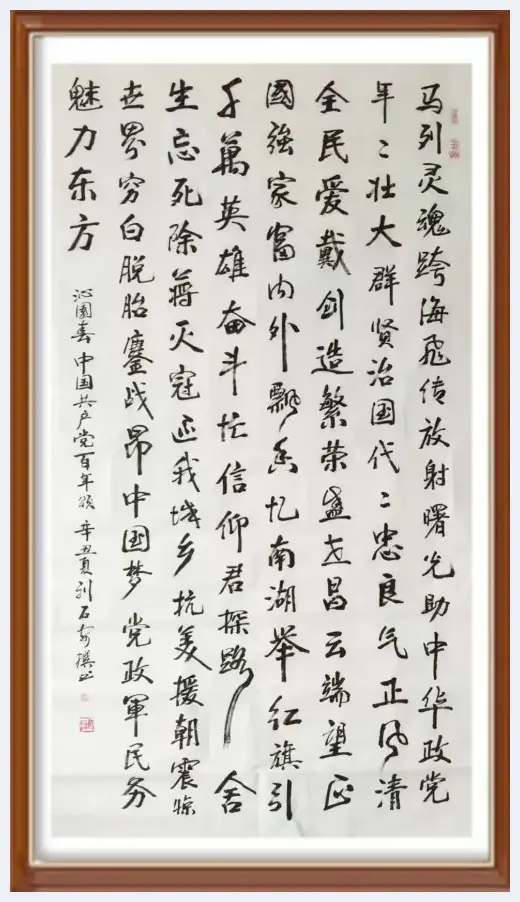 马列灵魂跨海飞传放射曙光助中华政党
年〻壮大群贤治国代〻忠良气正风清
全民爱戴创造繁荣盛世昌云端望正
國強家富内外飘香忆南湖举红旗引
千萬英雄奋斗忙信仰君探路舍
生忘死除蒋灭寇还我城乡抗美援朝震惊
世界穷白脱胎鏖战昂中国梦党政軍民务
魅力东方
沁園春中国共产党百年颂辛丑夏刘石